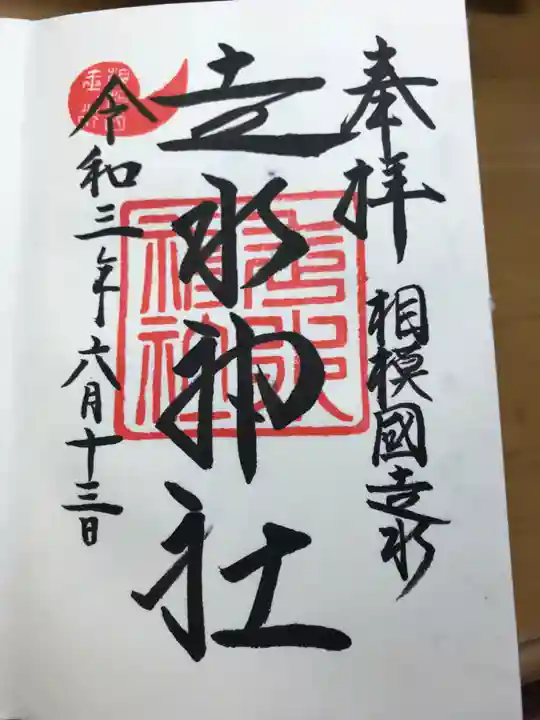 奉拝
相模國走水
走水神社
走水神社
令和三年六月十三日